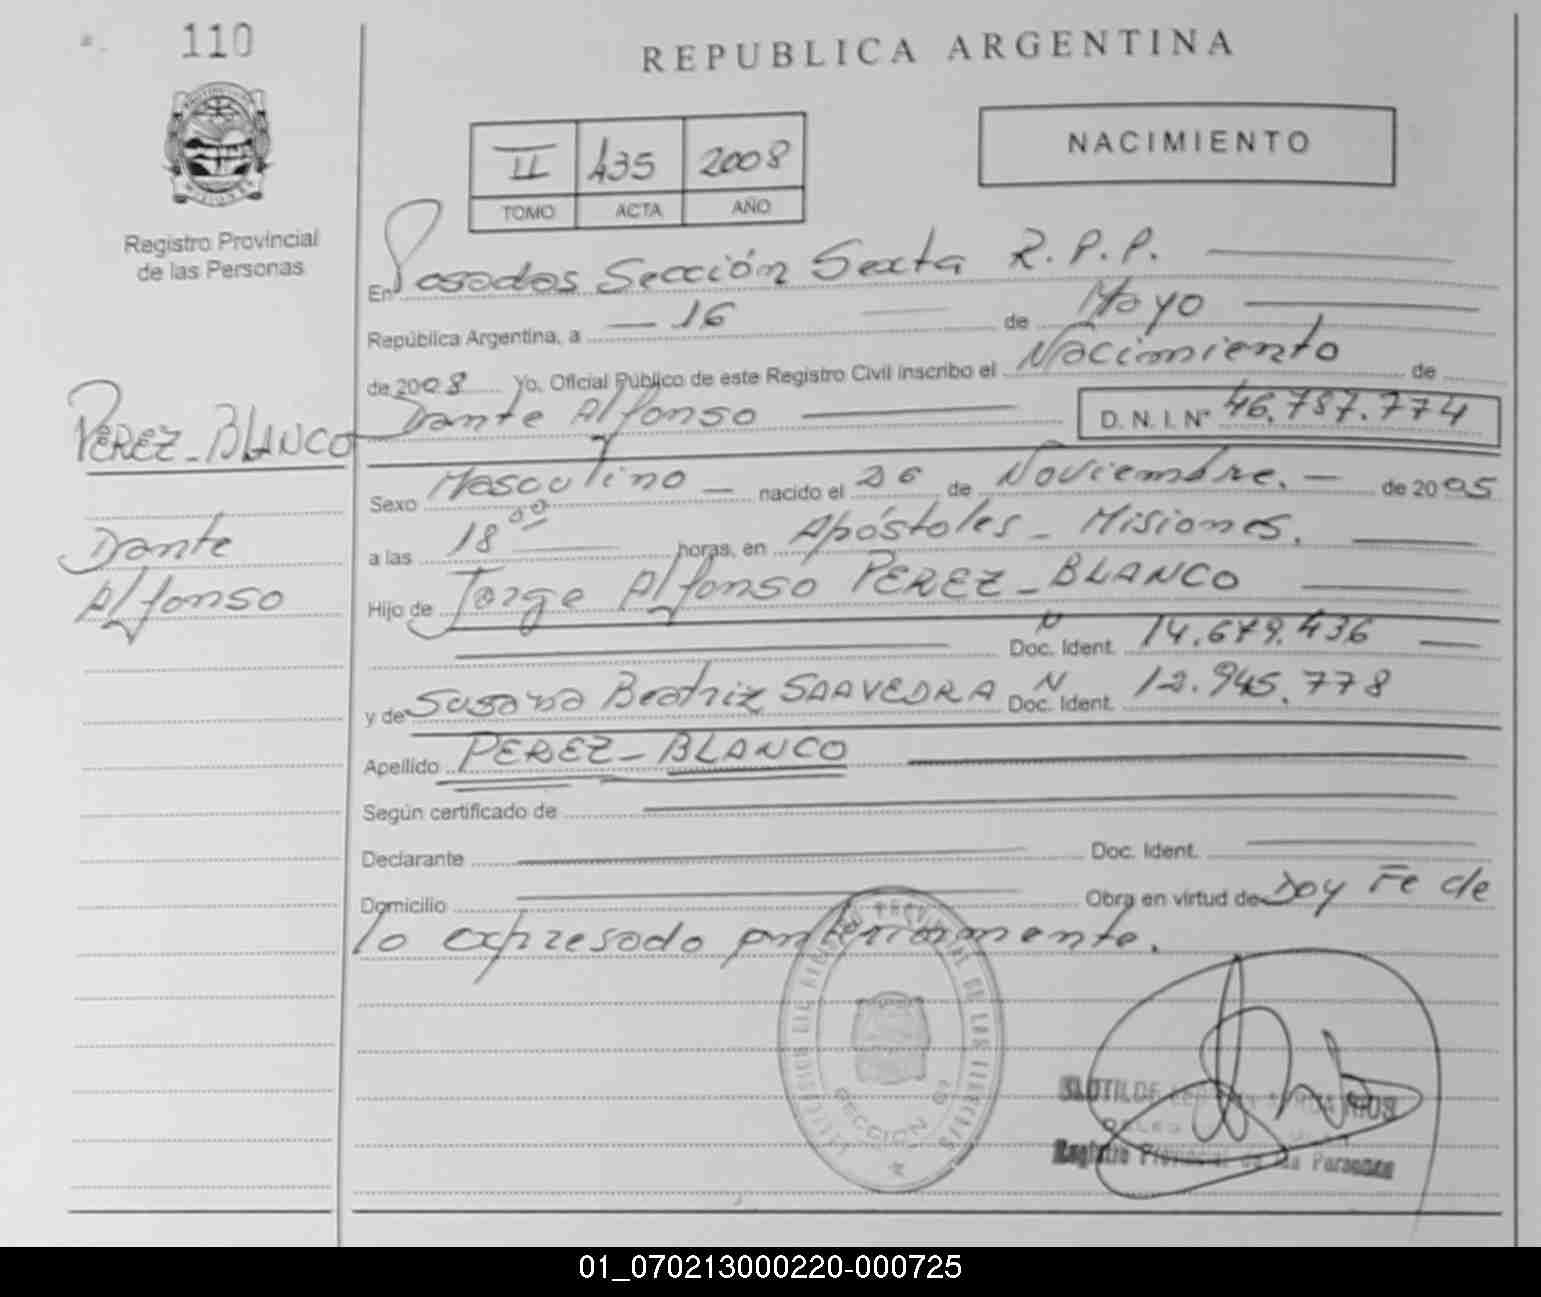 110
REPUBLICA ARGENTINA
NACIMIENTO
II 435 2008
TOMO ACTA AÑO
Registro Provincial
de las Personas
En Posadas Sección Sexta R.P.P.
República Argentina, a 16 de Mayo
de 2008 Yo. Oficial Público de este Registro Civil inscribo el Nacimiento de
PEREZ-BLANCO Dante Alfonso D. N. I. Nº 46.787.774
Sexo Masculino nacido el 26 de Noviembre. de 2005
Dante
a las 18⁰⁰ horas, en Apóstoles - Misiones.
Alfonso
Hijo de Jorge Alfonso PEREZ-BLANCO
Doc. Ident. N 14.679.436
y de Susana Beatriz SAAVEDRA Doc. Ident. N 12.945.778
Apellido PEREZ-BLANCO
Según certificado de
Declarante Doc. Ident.
Domicilio Obra en virtud de Doy Fe de
lo expresado anteriormente.
SECCION
Registro Provincial de las Personas
01_070213000220-000725